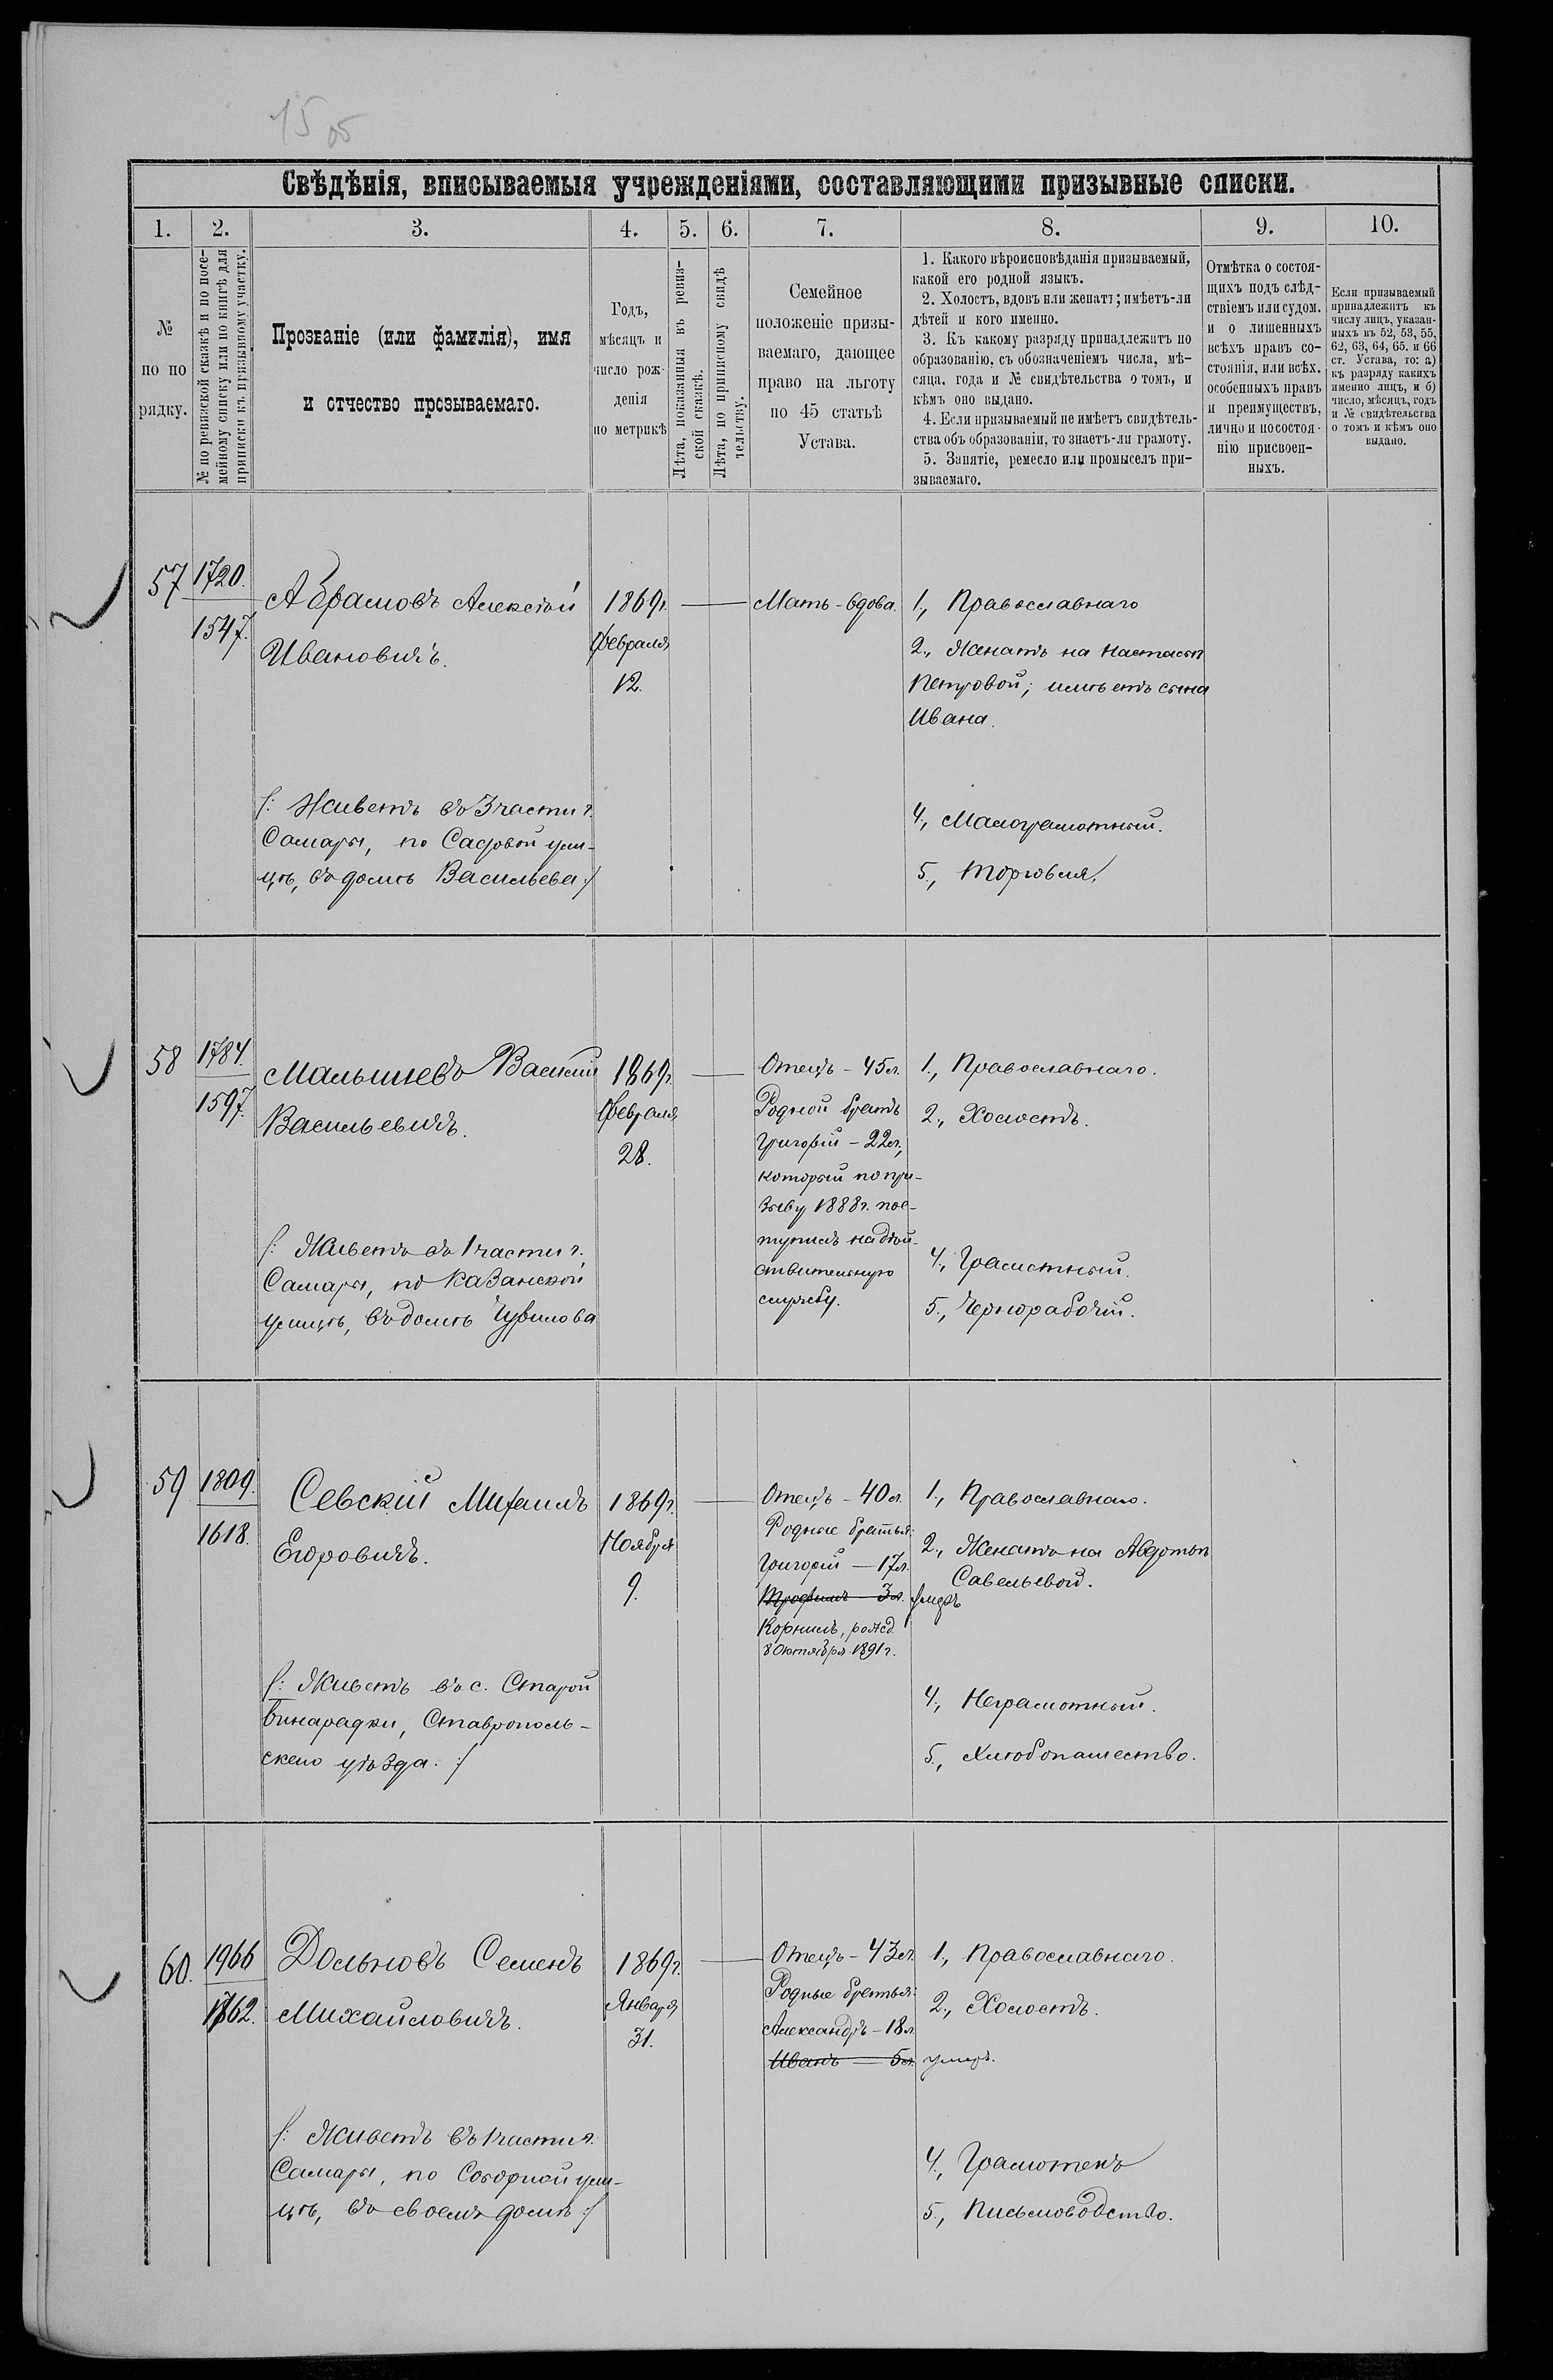 15 об
Свѣдѣнія, вписываемыя учрежденіями, составляющими призывные списки.
1. 2. 3. 4. 5. 6. 7. 8. 9. 10.
№
по по
рядку.
№ по ревизской сказкѣ и по посе-
мейному списку или по книгѣ для
приписки къ призывному участку.
Прозваніе (или фамилія), имя
и отчество призываемаго.
Годъ,
мѣсяцъ и
число рож-
денія
по метрикѣ
Лѣта, показанныя въ ревиз-
ской сказкѣ.
Лѣта, по приписному свидѣ
тельству.
Семейное
положеніе призы-
ваемаго, дающее
право на льготу
по 45 статьѣ
Устава.
1. Какого вѣроисповѣданія призываемый,
какой его родной языкъ.
2. Холостъ, вдовъ или женатъ; имѣетъ-ли
дѣтей и кого именно.
3. Къ какому разряду принадлежитъ по
образованію, съ обозначеніемъ числа, мѣ-
сяца, года и № свидѣтельства о томъ, и
кѣмъ оно выдано.
4. Если призываемый не имѣетъ свидѣтель-
ства объ образованіи, то знаетъ-ли грамоту.
5. Занятіе, ремесло или промыселъ при-
зываемаго.
Отмѣтка о состоя-
щихъ подъ слѣд-
ствіемъ или судом.
и о лишенныхъ
всѣхъ правъ со-
стоянія, или всѣхъ.
особенныхъ правъ
и преимуществъ,
лично и по состоя-
нію присвоен-
ныхъ.
Если призываемый
принадлежитъ къ
числу лицъ, указан-
ныхъ въ 52, 53, 55,
62, 63, 64, 65. и 66
ст. Устава, то: а)
къ разряду какихъ
именно лицъ, и б)
число, мѣсяцъ, годъ
и № свидѣтельства
о томъ и кѣмъ оно
выдано.
57
1720.
1547.
Абрамовъ Алексѣй
Ивановичъ.
/: Живетъ въ 3 части г.
Самары, по Садовой ули-
цѣ, въ домѣ Васильева :/
1869г.
Февраля
12.
Мать - вдова.
1., Православнаго
2., Женатъ на Настасьѣ
Петровой; имѣетъ сына
Ивана.
4., Малограмотный.
5., Торговля.
58
1784.
1597.
Малышевъ Василій
Васильевичъ.
/: Живетъ въ 1 части г.
Самары, по Казанской
улицѣ, въ домѣ Чувилова
1869г.
Февраля
28.
Отецъ - 45л.
Родной братъ
Григорій - 22л.,
который по при-
зыву 1888г. пос-
тупилъ на дѣй-
ствительную
службу.
1., Православнаго.
2., Холостъ.
4., Грамотный.
5., Чернорабочій.
59
1809.
1618.
Севскій Михаилъ
Егоровичъ.
/: Живетъ въ с. Старой
Бинарадки, Ставрополь-
скаго уѣзда. :/
1869г.
Ноября
9.
Отецъ - 40л.
Родные братья:
Григорій - 17л.
Трофимъ - 3л. умеръ
Корнилъ, рожд.
8 Октября 1891г.
1., Православнаго.
2., Женатъ на Авдотьѣ
Савельевой.
4., Неграмотный.
5., Хлѣбопашество.
60.
1966
1762.
Дольновъ Семенъ
Михайловичъ.
/: Живетъ въ 1 части г.
Самары, по Соборной ули-
цѣ, въ своемъ домѣ :/
1869г.
Января
31.
Отецъ - 43л.
Родные братья:
Александръ - 18л
Иванъ - 5л. умеръ.
1., Православнаго.
2., Холостъ.
4., Грамотенъ
5., Письмоводство.